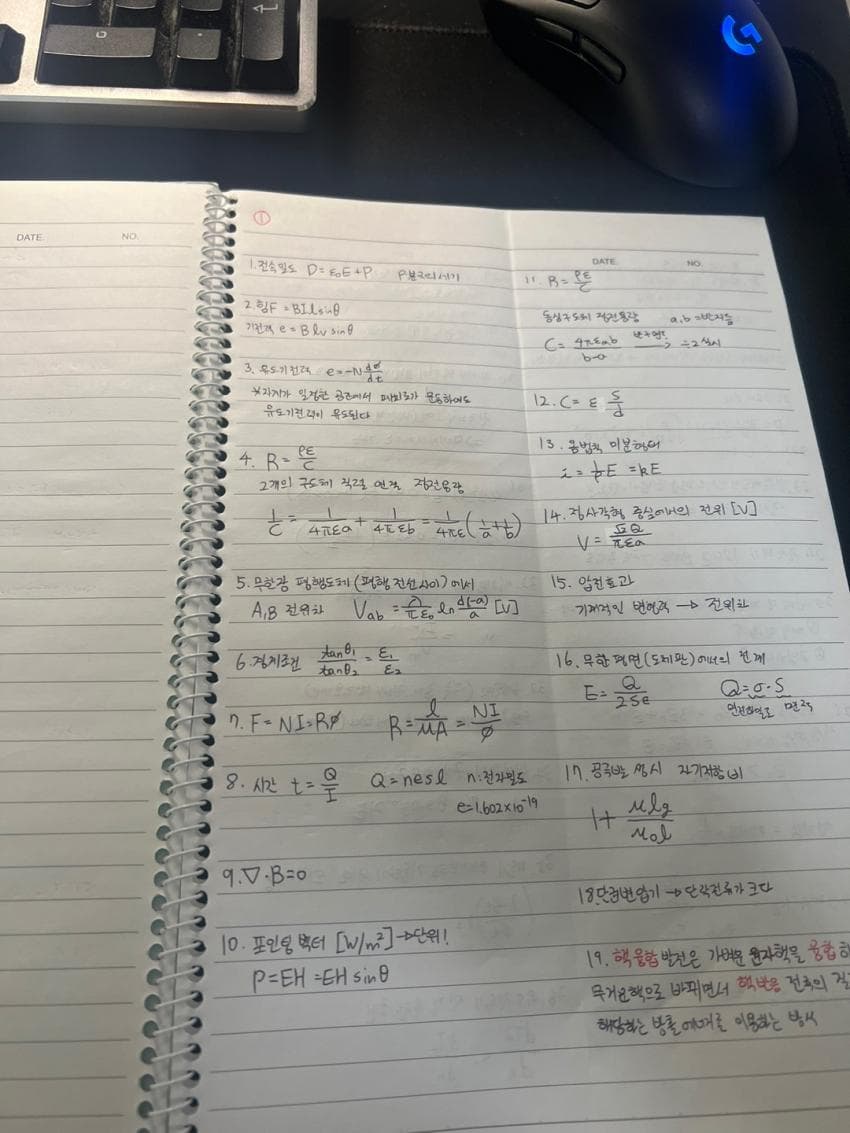 DATE. NO.
①
1. 전속밀도 D = ε₀E + P P분극의세기
2. 힘 F = BIlsinθ
기전력 e = Blv sinθ
3. 유도기전력 e = -N dø/dt
*자계가 일정한 공간에서 폐회로가 운동하여도
유도기전력이 유도된다
4. R = ρε/C
2개의 구도체 직렬 연결 정전용량
1/C = 1/4πεa + 1/4πεb = 1/4πε (1/a + 1/b)
5. 무한장 평행도체 (평행 전선사이) 에서
A,B 전위차 Vab = λ/πε₀ ln d(-a)/a [V]
6. 경계조건 tanθ₁/tanθ₂ = ε₁/ε₂
7. F = NI = Rø R = l/μA = NI/ø
8. 시간 t = Q/I Q = nesl n:전자밀도
e=1.602×10⁻¹⁹
9. ∇·B=0
10. 포인팅 벡터 [W/m²] → 단위!
P = EH = EH sinθ
DATE. NO.
11. R = ρε/C
동심구도체 정전용량 a,b = 반지름
C = 4πεab/b-a → ÷2 싱시
12. C = ε S/d
13. 옴법칙 미분형태
i = 1/ρ E = kE
14. 정사각형 중심에서의 전위 [V]
V = √2Q/πεa
15. 압전효과
기계적인 변형력 → 전위차
16. 무한 평면(도체판)에서의 전계
E = Q/2Sε Q = σ·S
면전하밀도 면적
17. 공극발생시 자기저항 비
1 + μlg/μ₀l
18. 단권변압기 → 단락전류가 크다
19. 핵융합발전은 가벼운 원자핵을 융합하
무거운핵으로 바뀌면서 핵반응 전후의 질
해당하는 방출에너지를 이용하는 방식